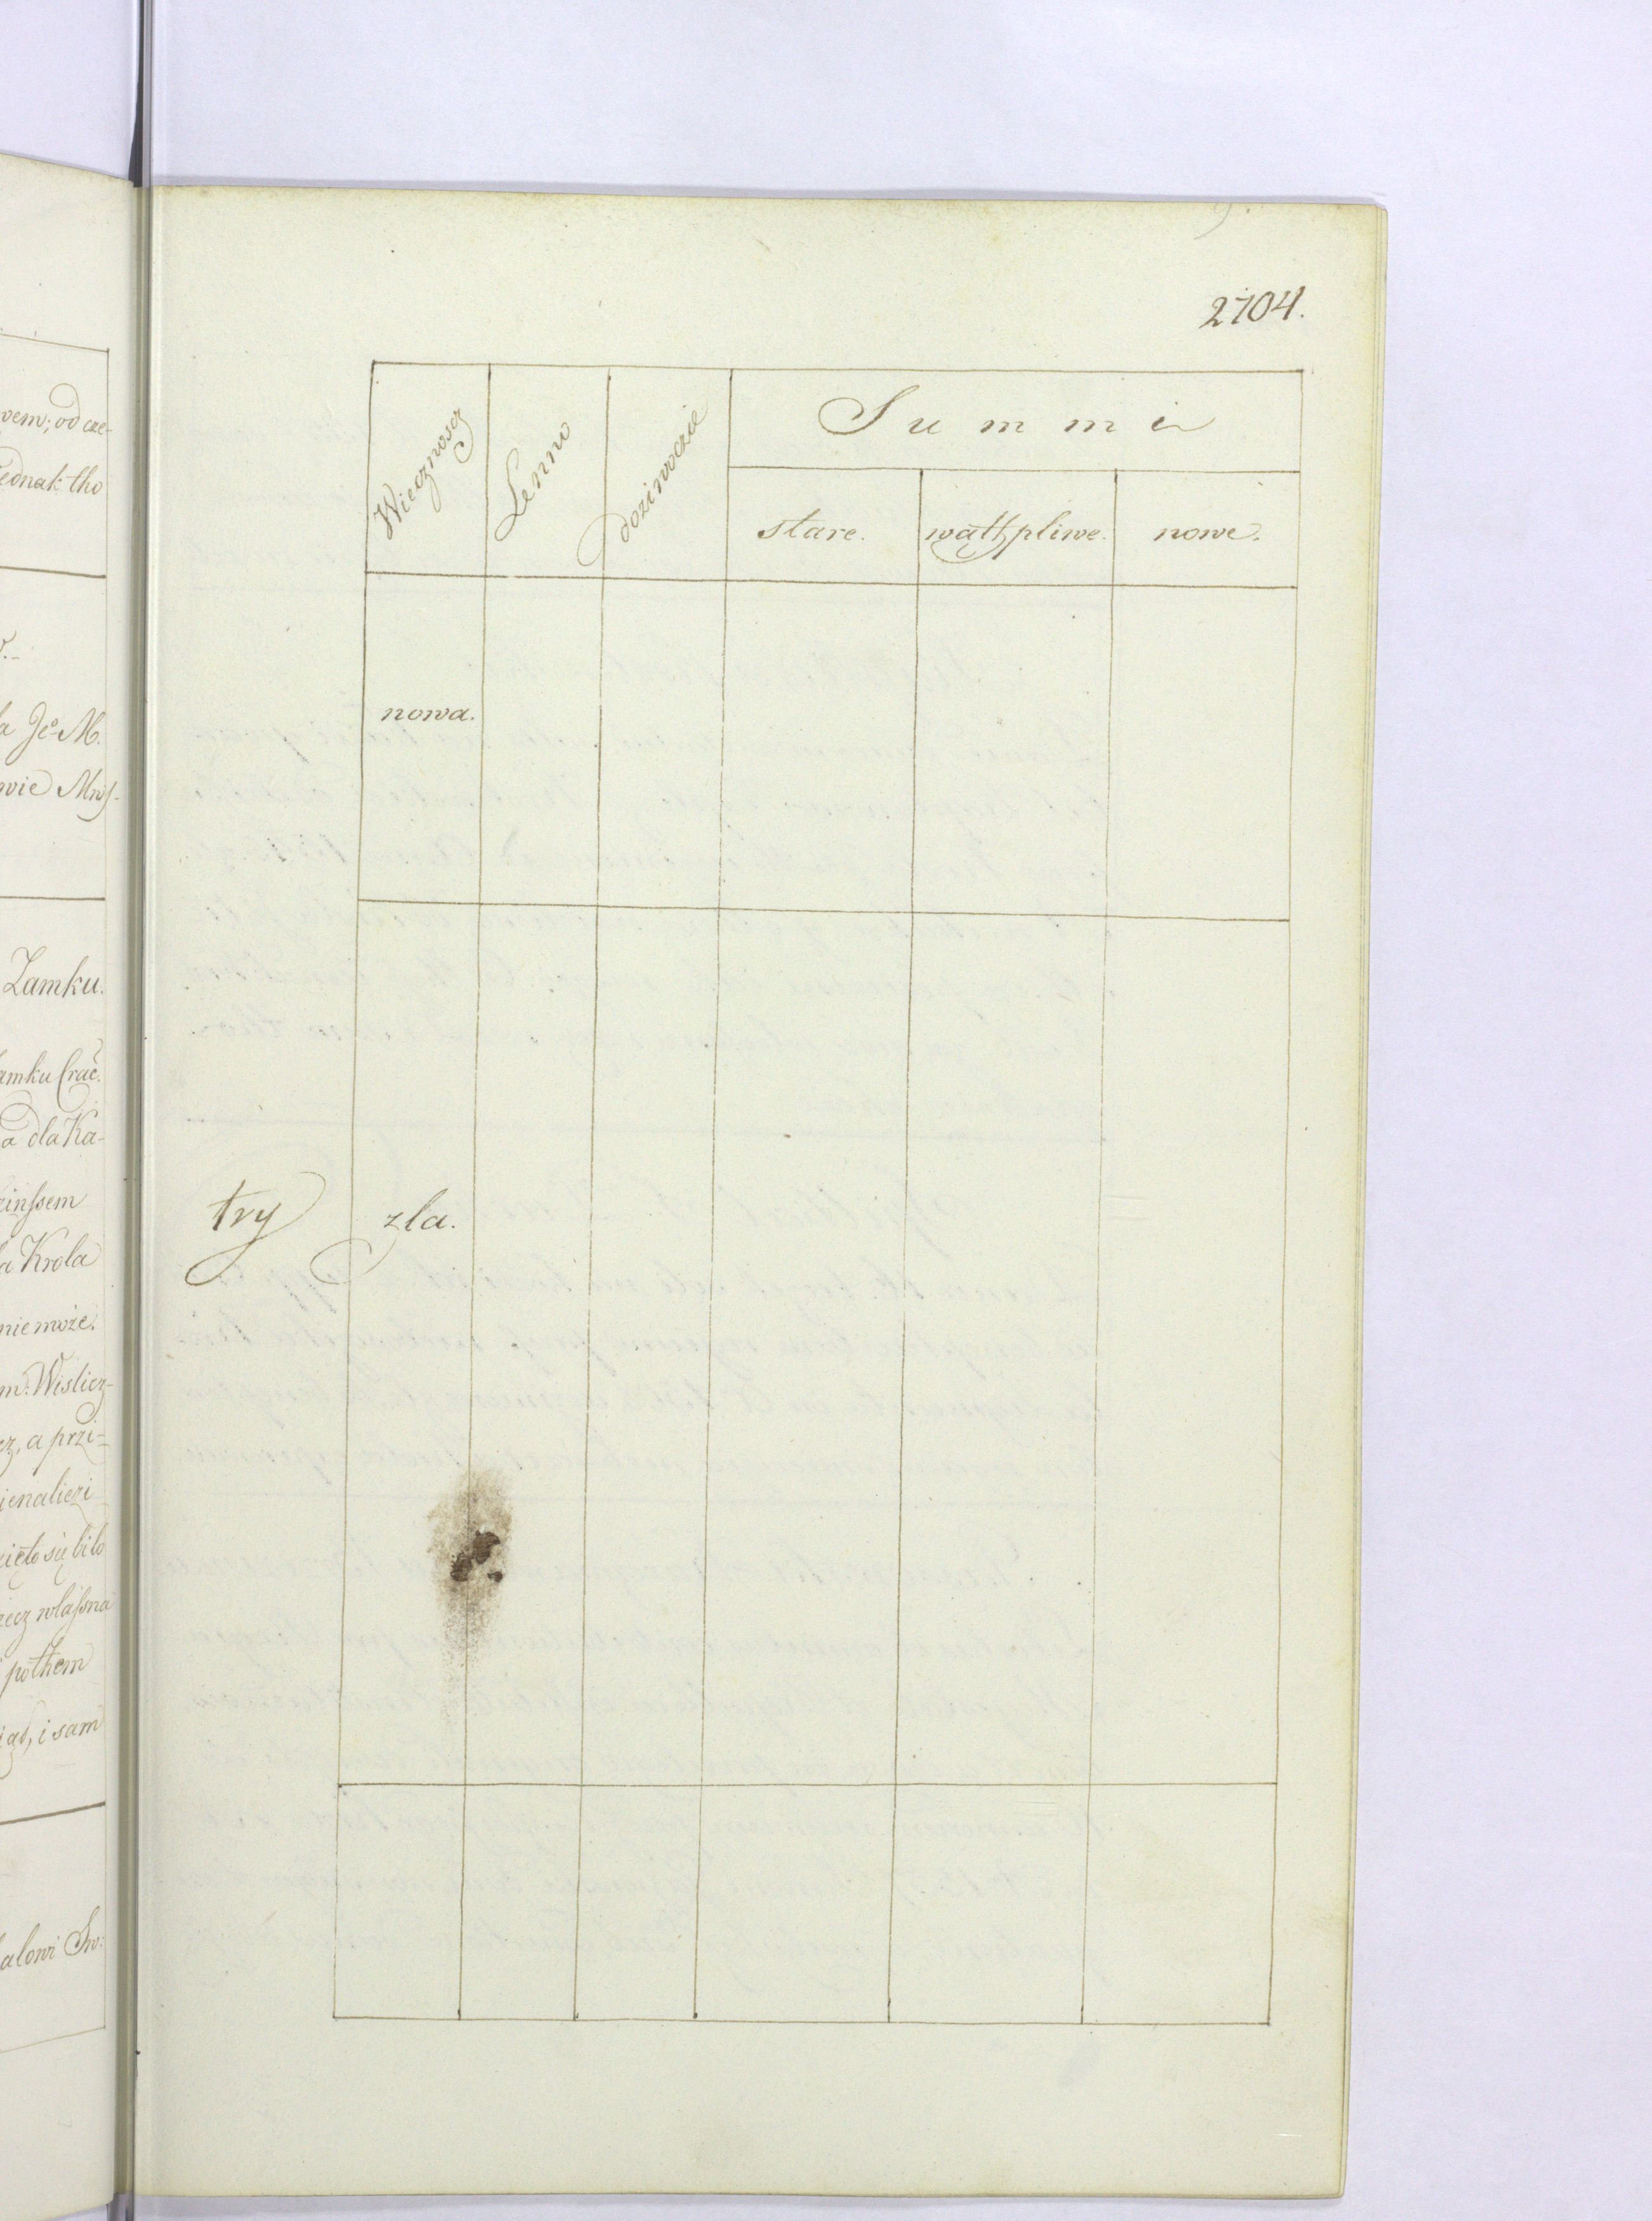 vem; od cze-
ednak tho
la Je° M.
wie Mrs-
Zamku.
amku Crac.
a dla Ka-
zinssem
la Krola
nie może.
m. Wislicz-
cz, a przi-
ienaliezi
ięto się biło
iecz własna
pothem
iął, i sam
alowi Sw:
2704.
Wiecznoscz
Lenno
doziwoczie
Summi
stare. wąthpliwe. nowe.
nowa.
try zla.